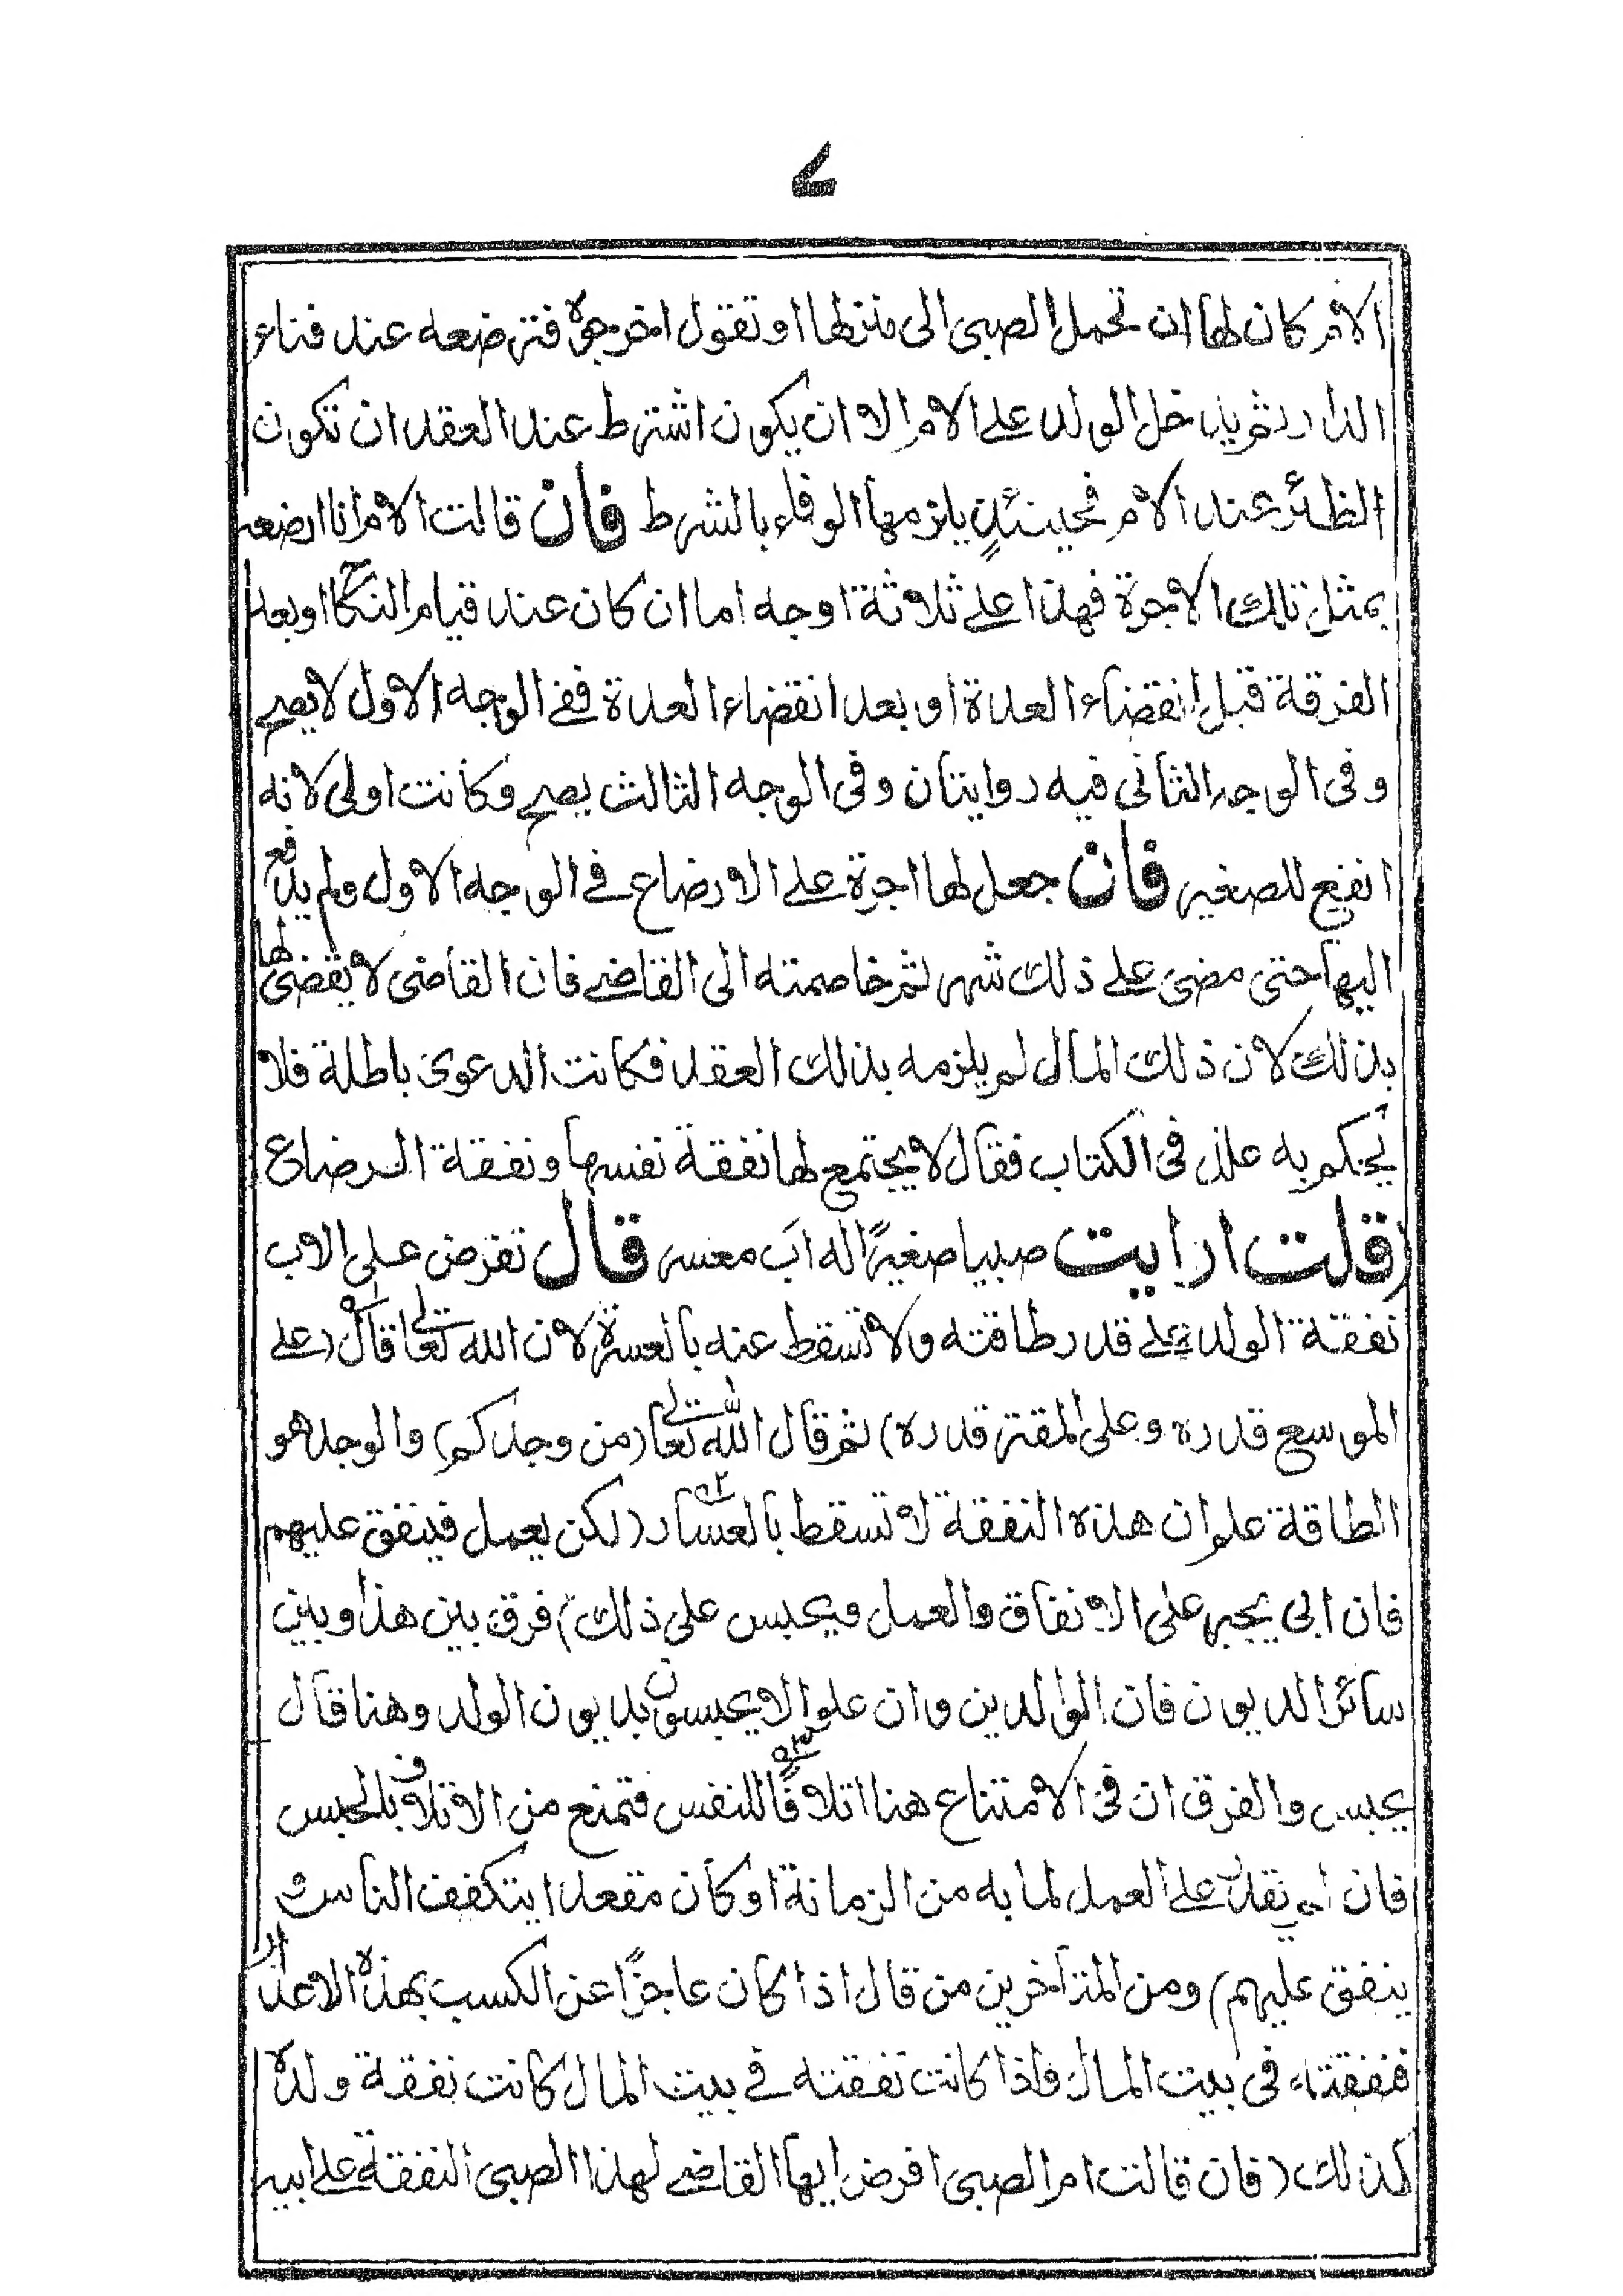 ے
الام كان لها ان تحمل الصبى الى منزلها او تقول اخرجوه فترضعه عند فناء
الدار ثم يدخل الولد على الام الا ان يكون اشترط عند العقد ان تكون
الظئر عند الام فحينئذٍ يلزمها الوفاء بالشرط فان قالت الام انا ارضعه
بمثل تلك الاجرة فهذا على ثلاثة اوجه اما ان كان عند قيام النكاح او بعد
الفرقة قبل انقضاء العدة او بعد انقضاء العدة ففى الوجه الاول لا يصح
وفى الوجه الثانى فيه روايتان وفى الوجه الثالث يصح وكانت اولى لانه
انفع للصغير فان جعل لها اجرة على الارضاع فى الوجه الاول ولم يدفع
اليها حتى مضى على ذلك شهر ثم خاصمته الى القاضى فان القاضى لا يقضى لها
بذلك لان ذلك المال لم يلزمه بذلك العقد فكانت الدعوى باطلة فلا
يحكم به علل فى الكتاب فقال لا يجتمع لها نفقة نفسها ونفقة الرضاع
(قلت ارايت صبيا صغيرًا له اب معسر قال تفرض على الاب
نفقة الولد على قدر طاقته ولا تسقط عنه بالعسرة لان الله تعالى قال (على
الموسع قدره وعلى المقتر قدره) ثم قال الله تعالى (من وجدكم) والوجد هو
الطاقة علم ان هذه النفقة لا تسقط بالعسار (لكن يعمل فينفق عليهم
فان ابى يجبر على الانفاق والعمل ويحبس على ذلك) فرق بين هذا وبين
سائر الديون فان الوالدين وان علوا لا يحبسون بديون الولد وهنا قال
يحبس والفرق ان فى الامتناع هنا اتلافًا للنفس فتمنع من الاتلاف بالحبس
فان لم يقدر على العمل لما به من الزمانة او كان مقعدا يتكفف الناس و
ينفق عليهم) ومن المتاخرين من قال اذا كان عاجزًا عن الكسب بهذه الاعذار
فنفقته فى بيت المال فاذا كانت نفقته فى بيت المال كانت نفقة ولده
كذلك (فان قالت ام الصبى افرض ايها القاضى لهذا الصبى النفقة على ابيه